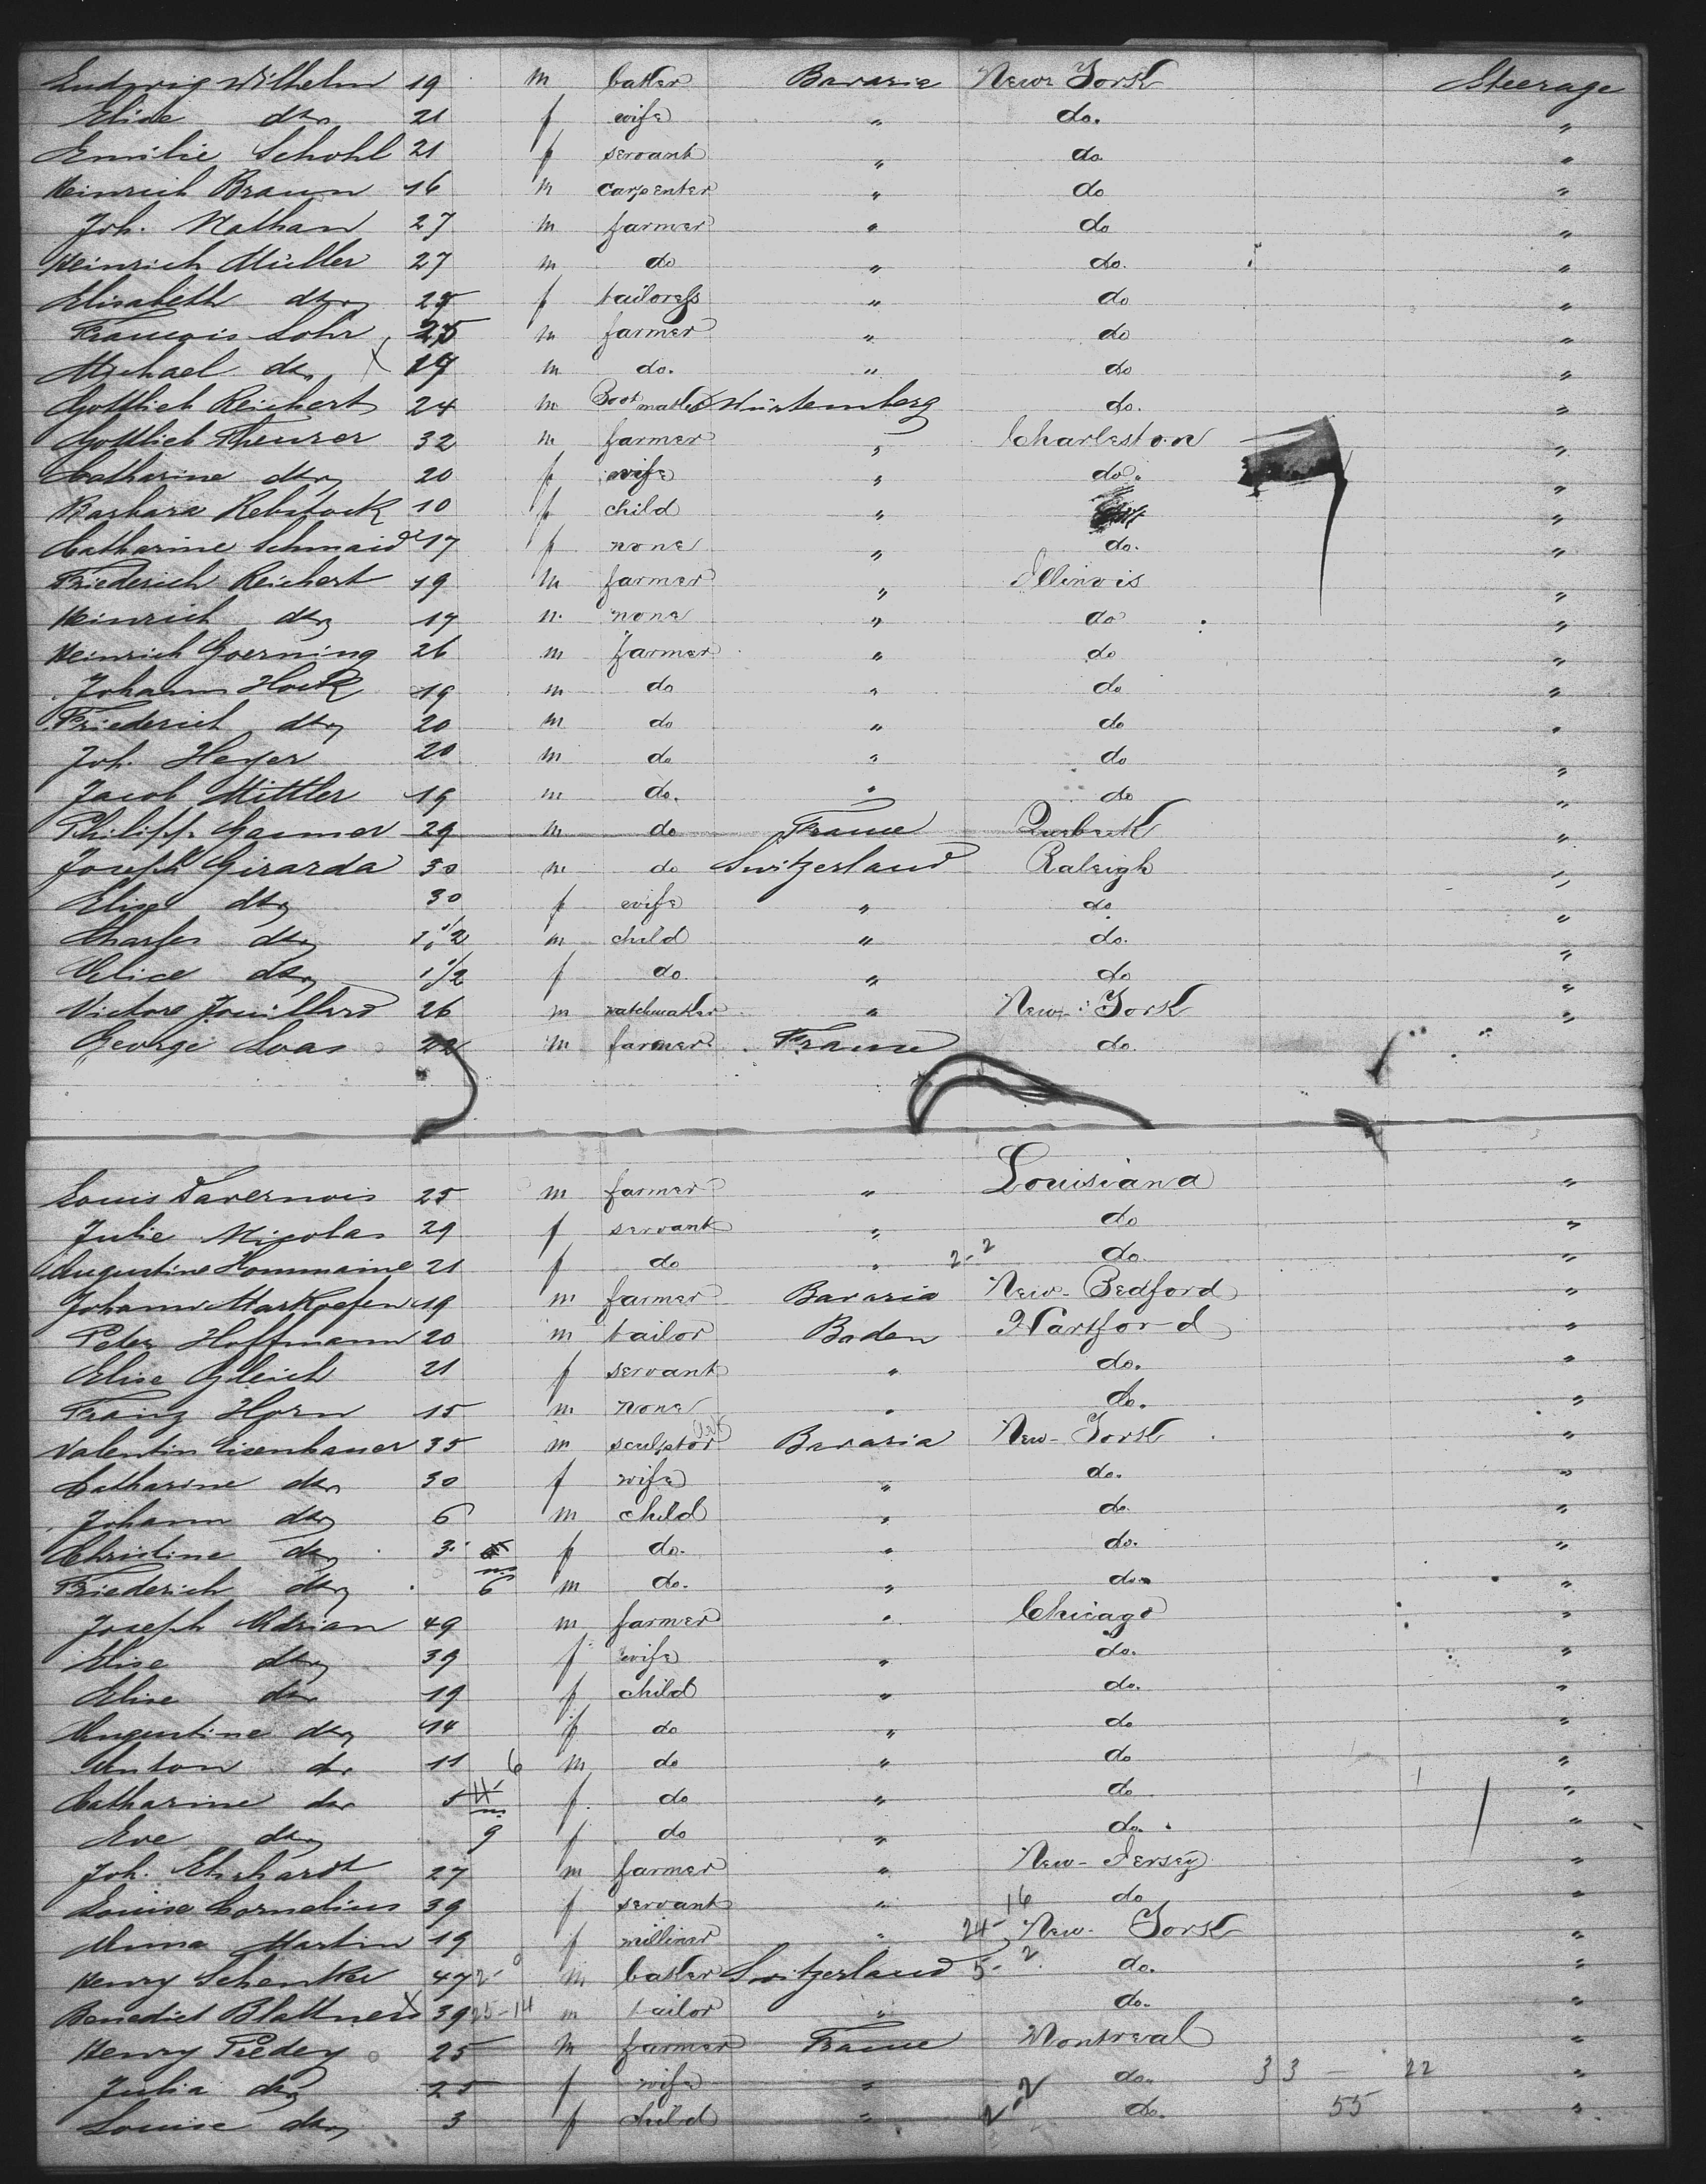 Ludwig Wilhelm 19 m baker Bavaria New York Steerage
Elise dto 21 f wife " do. "
Emilie Schohl 21 f servant " do. "
Heinrich Braun 16 m carpenter " do "
Joh. Nathan 27 m farmer " do "
Heinrich Müller 27 m do " do. "
Elisabeth dto 25 f tailoress " do "
Francois Lohr 25 m farmer " do "
Michael dto X 19 m do. " do "
Gottlieb Reichert 24 m Bootmaker Würtemberg do. "
Gottlieb Theurer 32 m farmer " Charleston "
Catharine dto 20 f wife " do. "
Barbara Rebstock 10 f child " "
Catharine Schmaid 17 f none " do. "
Friederich Reichert 19 m farmer " Illinois "
Heinrich dto 17 m none " do "
Heinrich Goerning 26 m farmer " do "
Johann Hock 19 m do " do "
Friederich dto 20 m do " do "
Joh. Heyer 20 m do " do "
Jacob Mittler 19 m do. " do "
Philipp Gaumer 29 m do France Quebeck "
Joseph Girarda 30 m do Switzerland Raleigh "
Elise dto 30 f wife " do "
Charles dto 1 1/2 m child " do. "
Felice dto 1 1/2 f do. " do "
Victore Jouillard 26 m watchmaker " New York "
George Loas 22 m farmer France do. "
Louis Tavernois 25 m farmer " Louisiana "
Julie Nicolas 29 f servant " do "
Augustine Hommaine 21 f do " 2-2 do. "
Johann Markoefen 19 m farmer Bavaria New-Bedford "
Peter Hoffmann 20 m tailor Baden Hartford "
Elise Gleich 21 f servant " do. "
Franz Horn 15 m none " do. "
Valentin Eisenhauer 35 m sculptor Bavaria New-York "
Catharine dto 30 f wife " do. "
Johann dto 6 m child " do. "
Christine dto 3 f do. " do. "
Friederich dto 6 m do. " do. "
Joseph Adrian 49 m farmer " Chicago "
Elise dto 39 f wife " do. "
Elise dto 19 f child " do. "
Augustine dto 14 f do " do "
Anton do 11 6 m do " do "
Catharine dto 5 f do " do "
Eve dto 9 f do " do. "
Joh. Ehrhardt 27 m farmer " New-Jersey "
Louise Cornelius 39 f servant " 16 do "
Anna Martin 19 f milliner " 24- New-York "
Henry Schenker 47 2-0 m baker Switzerland 5-2 do. "
Benedict Blattner X 39 25-14 m tailor " do. "
Henry Piedey 25 m farmer France Montreal "
Julia dto 25 f wife " do. 33 - 22 "
Louise dto 3 f child " 2-2 do. 55 "